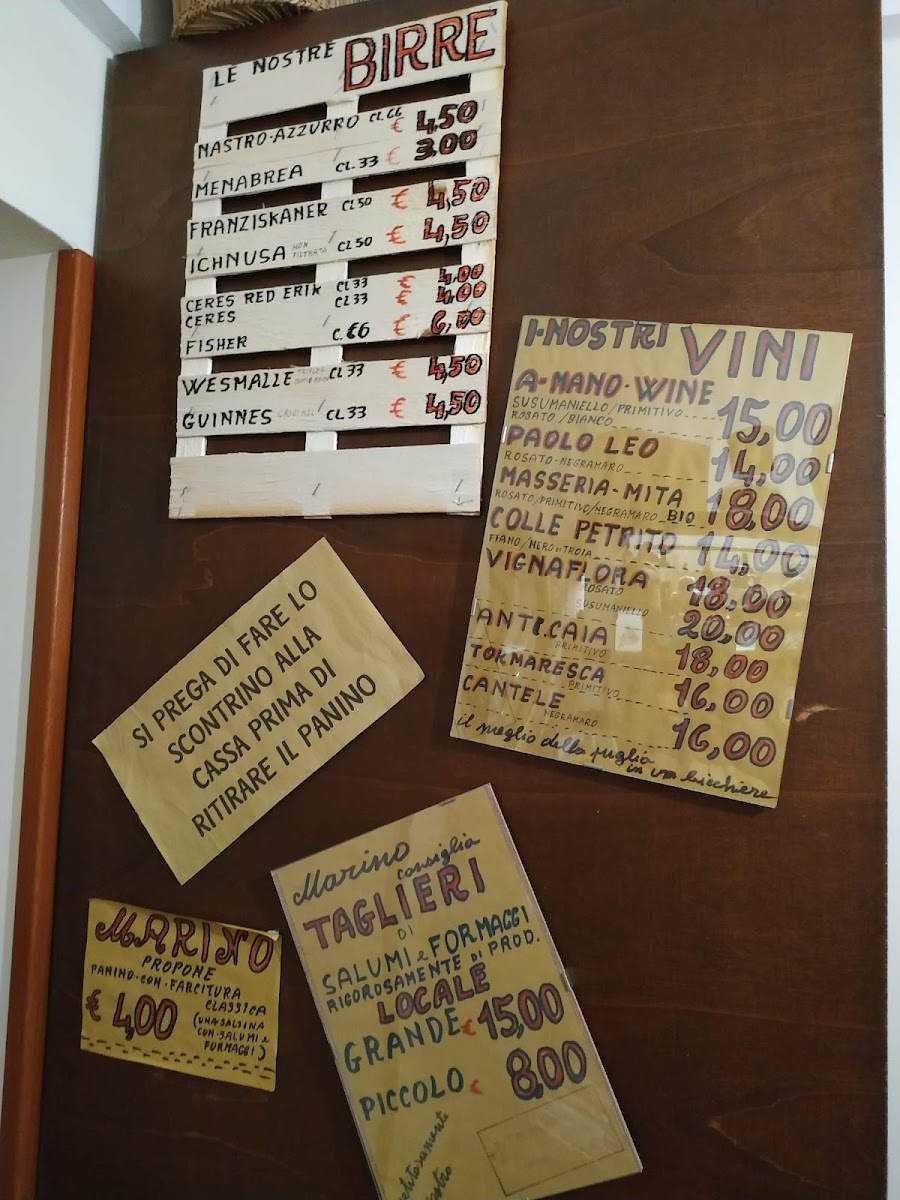 LE NOSTRE BIRRE
NASTRO-AZZURRO CL.66 € 4,50
MENABREA CL.33 € 3,00
FRANZISKANER CL50 € 4,50
ICHNUSA NON FILTRATA CL50 € 4,50
CERES RED ERIK CL33 € 4,00
CERES CL33 € 4,00
FISHER C.66 € 6,00
WESMALLE CL33 € 4,50
GUINNES ORIGINAL CL.33 € 4,50
I-NOSTRI VINI
A-MANO-WINE 15,00
SUSUMANIELLO/PRIMITIVO
ROSATO/BIANCO
PAOLO LEO 14,00
ROSATO-NEGRAMARO
MASSERIA-MITA 18,00
ROSATO/PRIMITIVO/NEGRAMARO BIO
COLLE PETRITO 14,00
FIANO/NERO DI TROIA
VIGNAFLORA
ROSATO 18,00
SUSUMANIELLO 20,00
ANTICAIA 18,00
PRIMITIVO
TORMARESCA 16,00
PRIMITIVO
CANTELE 16,00
NEGRAMARO
il meglio della puglia
in un bicchiere
SI PREGA DI FARE LO
SCONTRINO ALLA
CASSA PRIMA DI
RITIRARE IL PANINO
Marino
consiglia
TAGLIERI
DI
SALUMI e FORMAGGI
RIGOROSAMENTE DI PROD.
LOCALE
GRANDE € 15,00
PICCOLO € 8,00
MARINO
PROPONE
PANINO-CON-FARCITURA
CLASSICA
€ 4,00
(UNA-SALSINA
CON-SALUMI e
FORMAGGI)